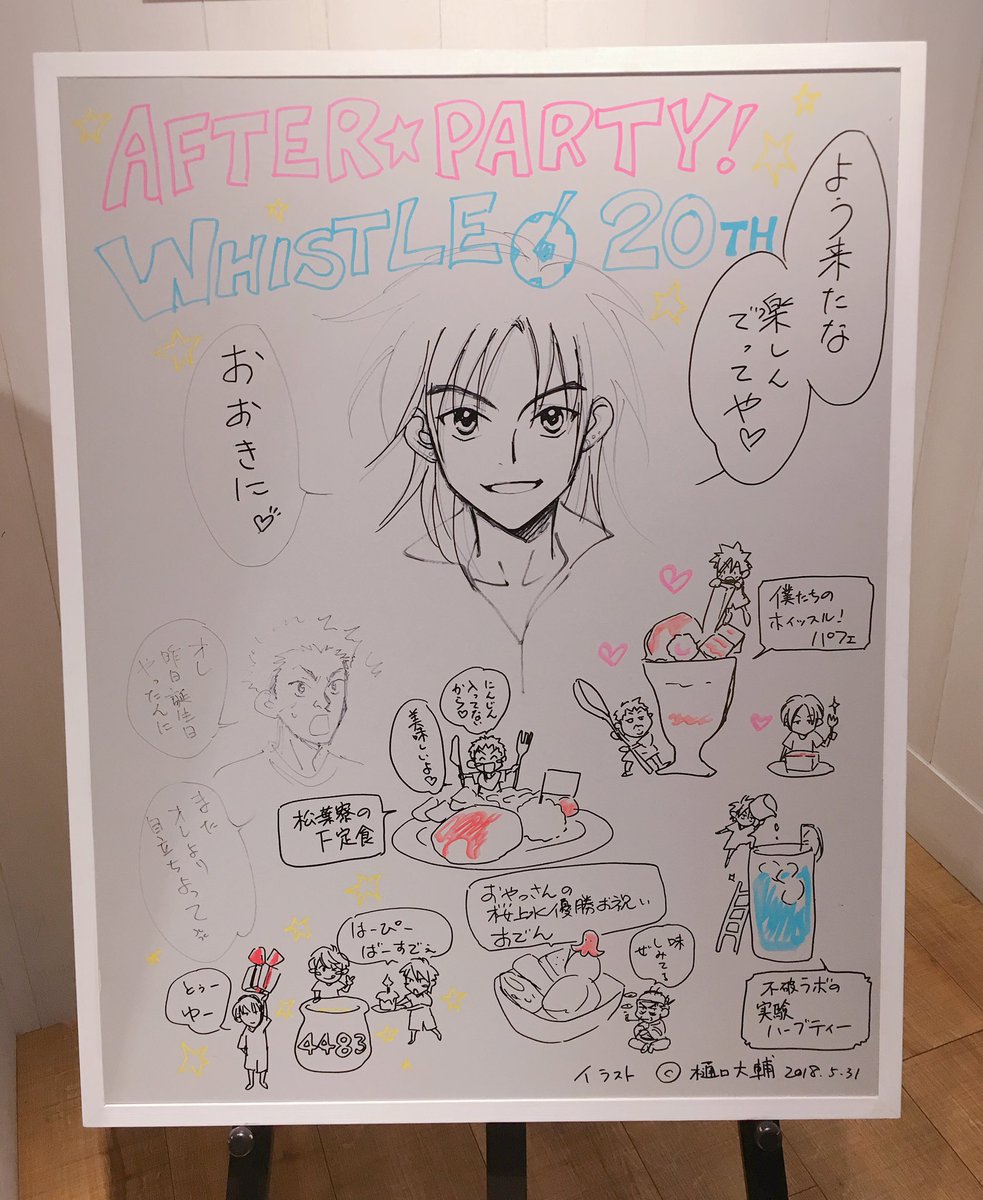 AFTER☆PARTY!
WHISTLE! 20TH
よう来たな
楽しん
でってや♡
おおきに♡
僕たちの
ホイッスル!
パフェ
オレ
昨日誕生日
やったんに
また
オレより
目立ちよって
にんじん
入ってない
から♡
美味しいよ♡
松葉寮の
下定食
おやっさんの
桜上水優勝お祝い
おでん
味
しみてる
ぜ
はーぴー
ばーすでぇ
とぅー
ゆー
4483
不破ラボの
実験
ハーブティー
イラスト © 樋口大輔 2018.5.31